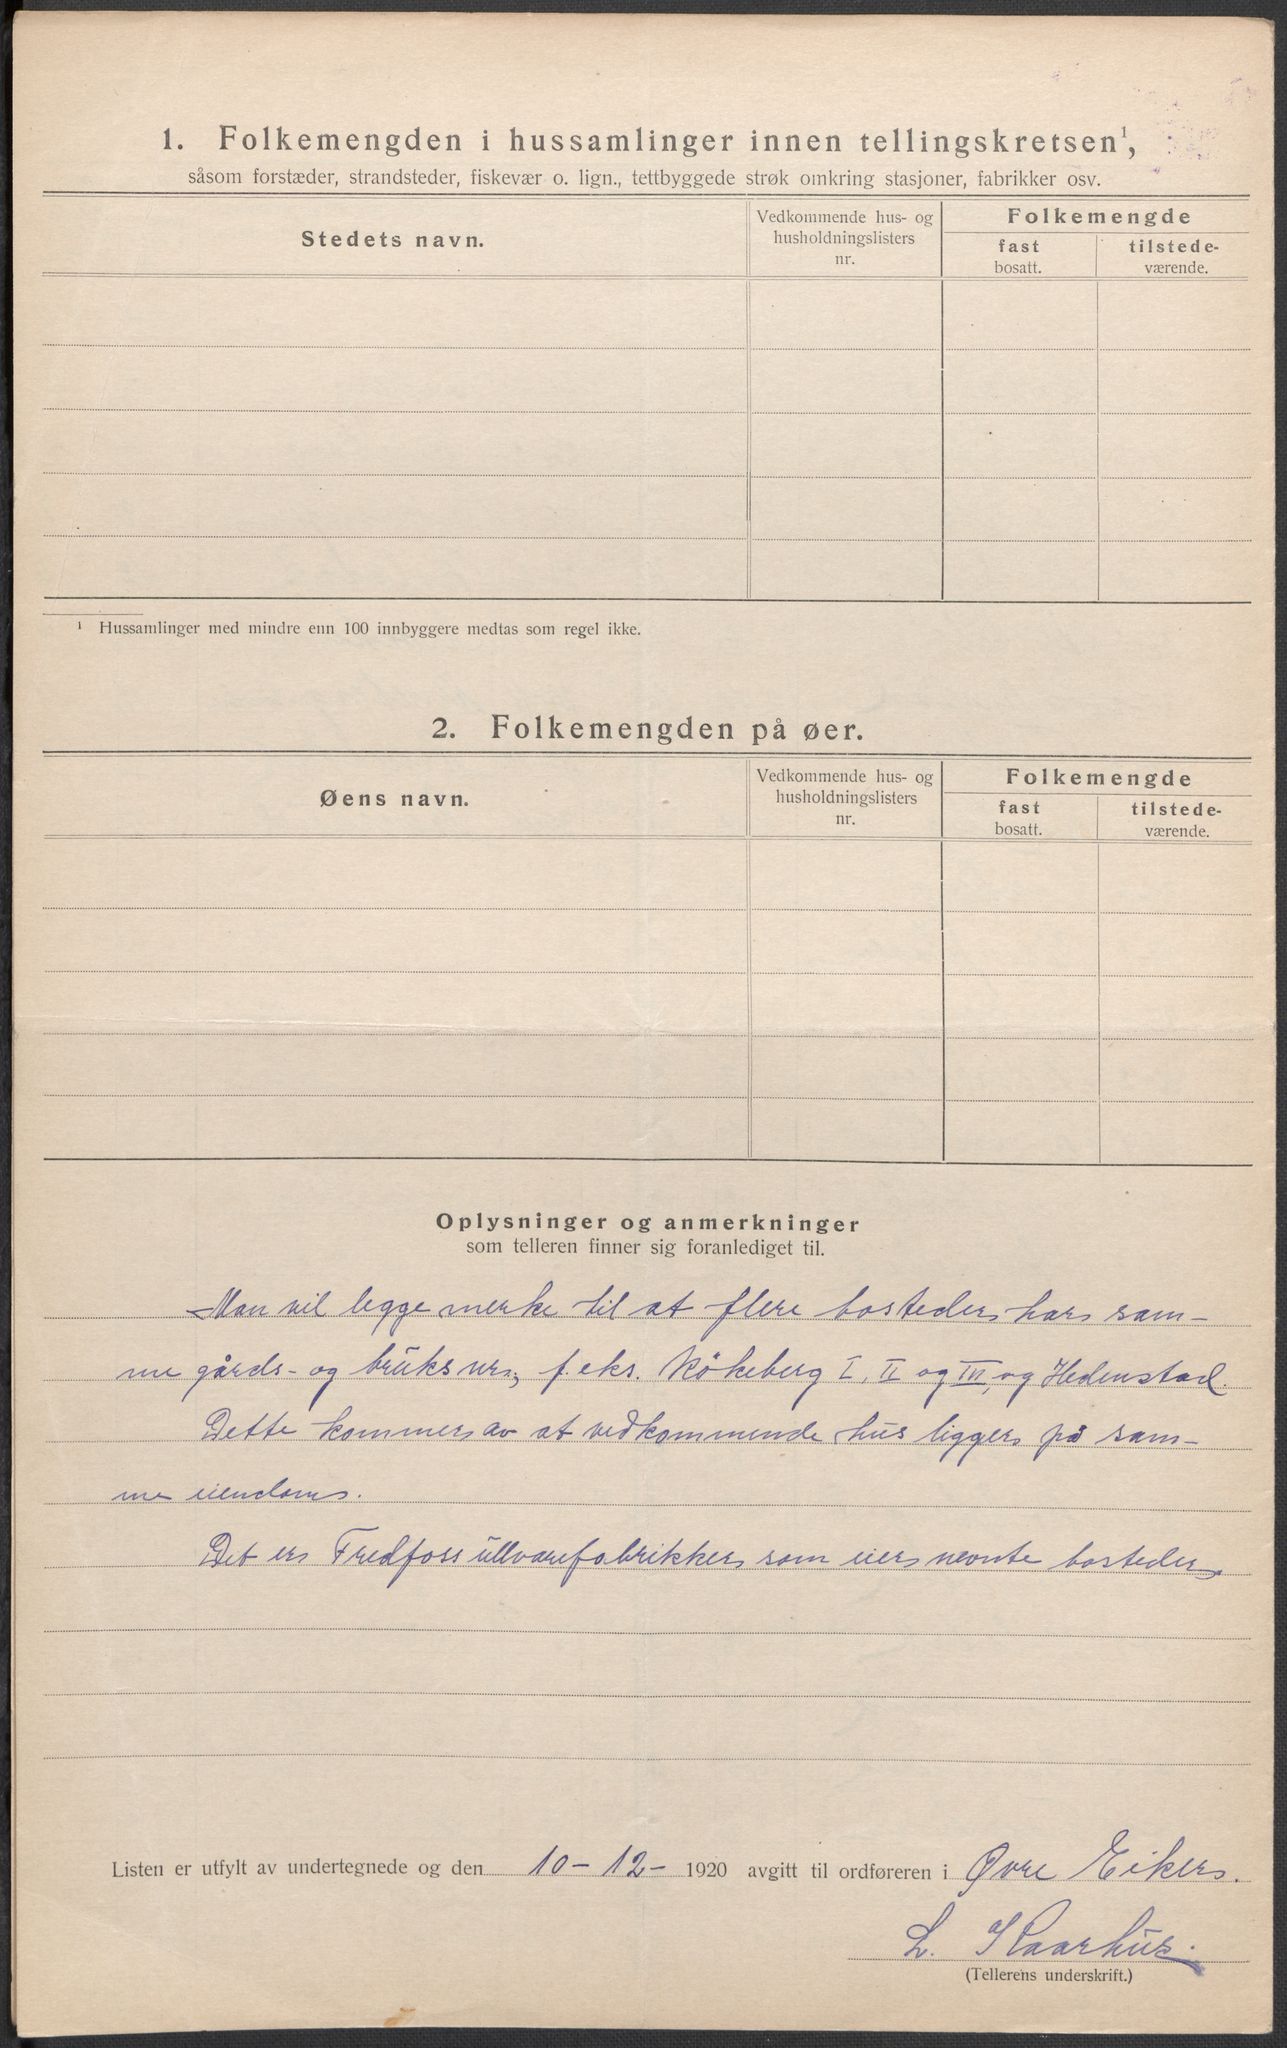 1. Folkemengden i hussamlinger innen tellingskretsen¹,
såsom forstæder, strandsteder, fiskevær o. lign., tettbyggede strøk omkring stasjoner, fabrikker osv.
Stedets navn.
Vedkommende hus- og
husholdningslisters
nr.
Folkemengde
fast
bosatt.
tilstede-
værende.
¹ Hussamlinger med mindre enn 100 innbyggere medtas som regel ikke.
2. Folkemengden på øer.
Øens navn.
Vedkommende hus- og
husholdningslisters
nr.
Folkemengde
fast
bosatt.
tilstede-
værende.
Oplysninger og anmerkninger
som telleren finner sig foranlediget til.
Man vil legge merke til at flere bosteder har sam-
me gårds- og bruksnr., f. eks. Kökeberg I, II og III, og Hedenstad.
Dette kommer av at vedkommende hus ligger på sam-
me eiendom.
Det er Fredfoss ullvarefabrikker som eier nevnte bosteder
Listen er utfylt av undertegnede og den 10-12- 1920 avgitt til ordføreren i Øvre Eiker.
L. Kaarhus.
(Tellerens underskrift.)